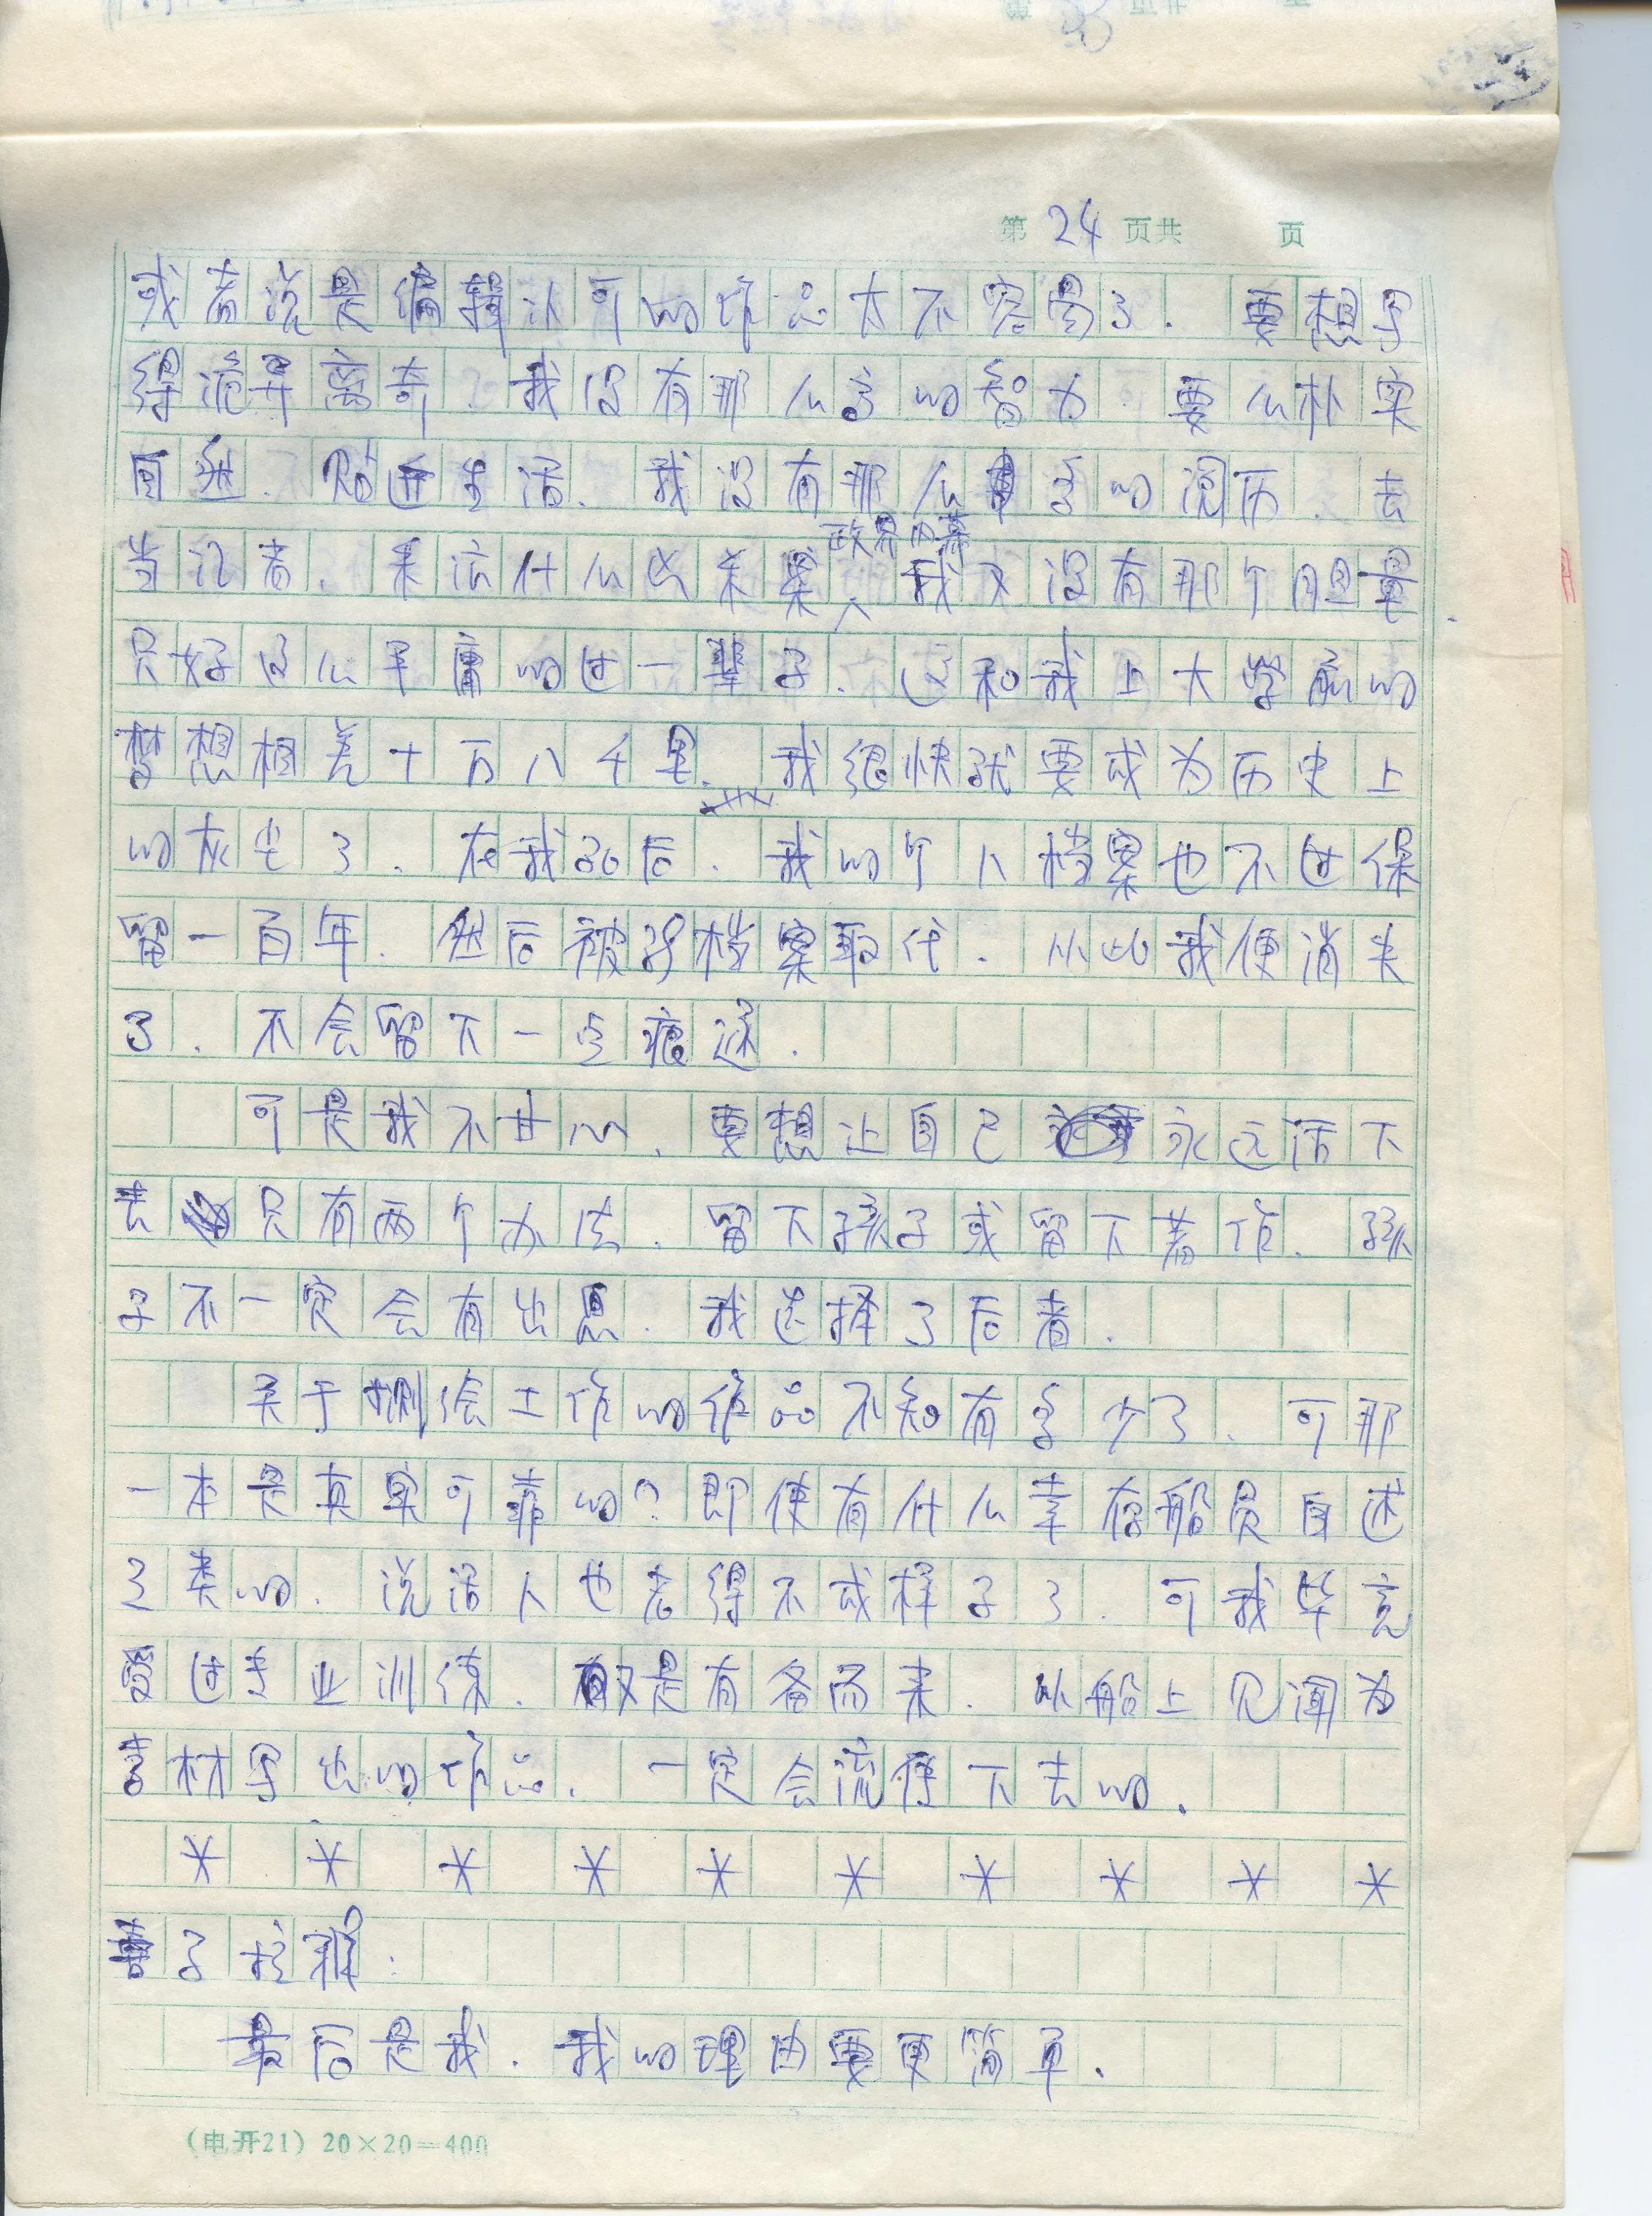 第 24 页共 页
或者说是编辑认可的作品太不容易了. 要想写
得诡异离奇. 我没有那么高的智力. 要么朴实
自然. 贴近生活. 我没有那么多的阅历. 去
当记者. 采访什么凶杀案政界内幕我又没有那个胆量.
只好这么平庸的过一辈子. 这和我上大学前的
梦想相差十万八千里. 我很快就要成为历史上
的灰尘了. 在我死后. 我的个人档案也不过保
留一百年. 然后被别档案取代. 从此我便消失
了. 不会留下一点痕迹.
可是我不甘心. 要想让自己永远活下
去只有两个办法. 留下孩子或留下著作. 孩
子不一定会有出息. 我选择了后者.
关于捌绘工作的作品不知有多少了. 可那
一本是真实可靠的? 即使有什么幸存船员自述
之类的. 说话人也老得不成样子了. 可我毕竟
受过专业训练. 又是有备而来. 以船上见闻为
素材写出的作品. 一定会流传下去的.
* * * * * * * * * *
子
最后是我. 我的理由要更简单.
(电开21) 20×20=400